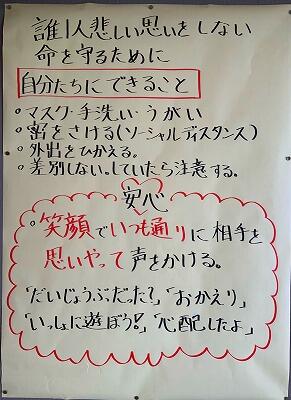 誰1人悲しい思いをしない
命を守るために
自分たちにできること
○マスク・手洗い・うがい
○密をさける(ソーシャルディスタンス)
○外出をひかえる。
○差別しない。していたら注意する。
安心
○笑顔でいつも通りに相手を
思いやって声をかける。
「だいじょうぶだった?」「おかえり」
「いっしょに遊ぼう!」「心配したよ」